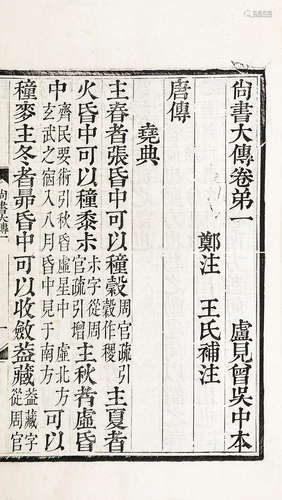 尚書大傳卷弟一 盧見曾吳中本
鄭注 王氏補注
唐傳
堯典
主春者張昏中可以種穀周官疏引穀作稷主夏者
火昏中可以種黍尗尗字從周官疏引增主秋者虛昏
中齊民要術引秋昏虛星中 虛北方玄武之宿八月昏中見于南方可以
種麥主冬者昴昏中可以收斂葢藏葢藏字從周官
尚書大傳一
一